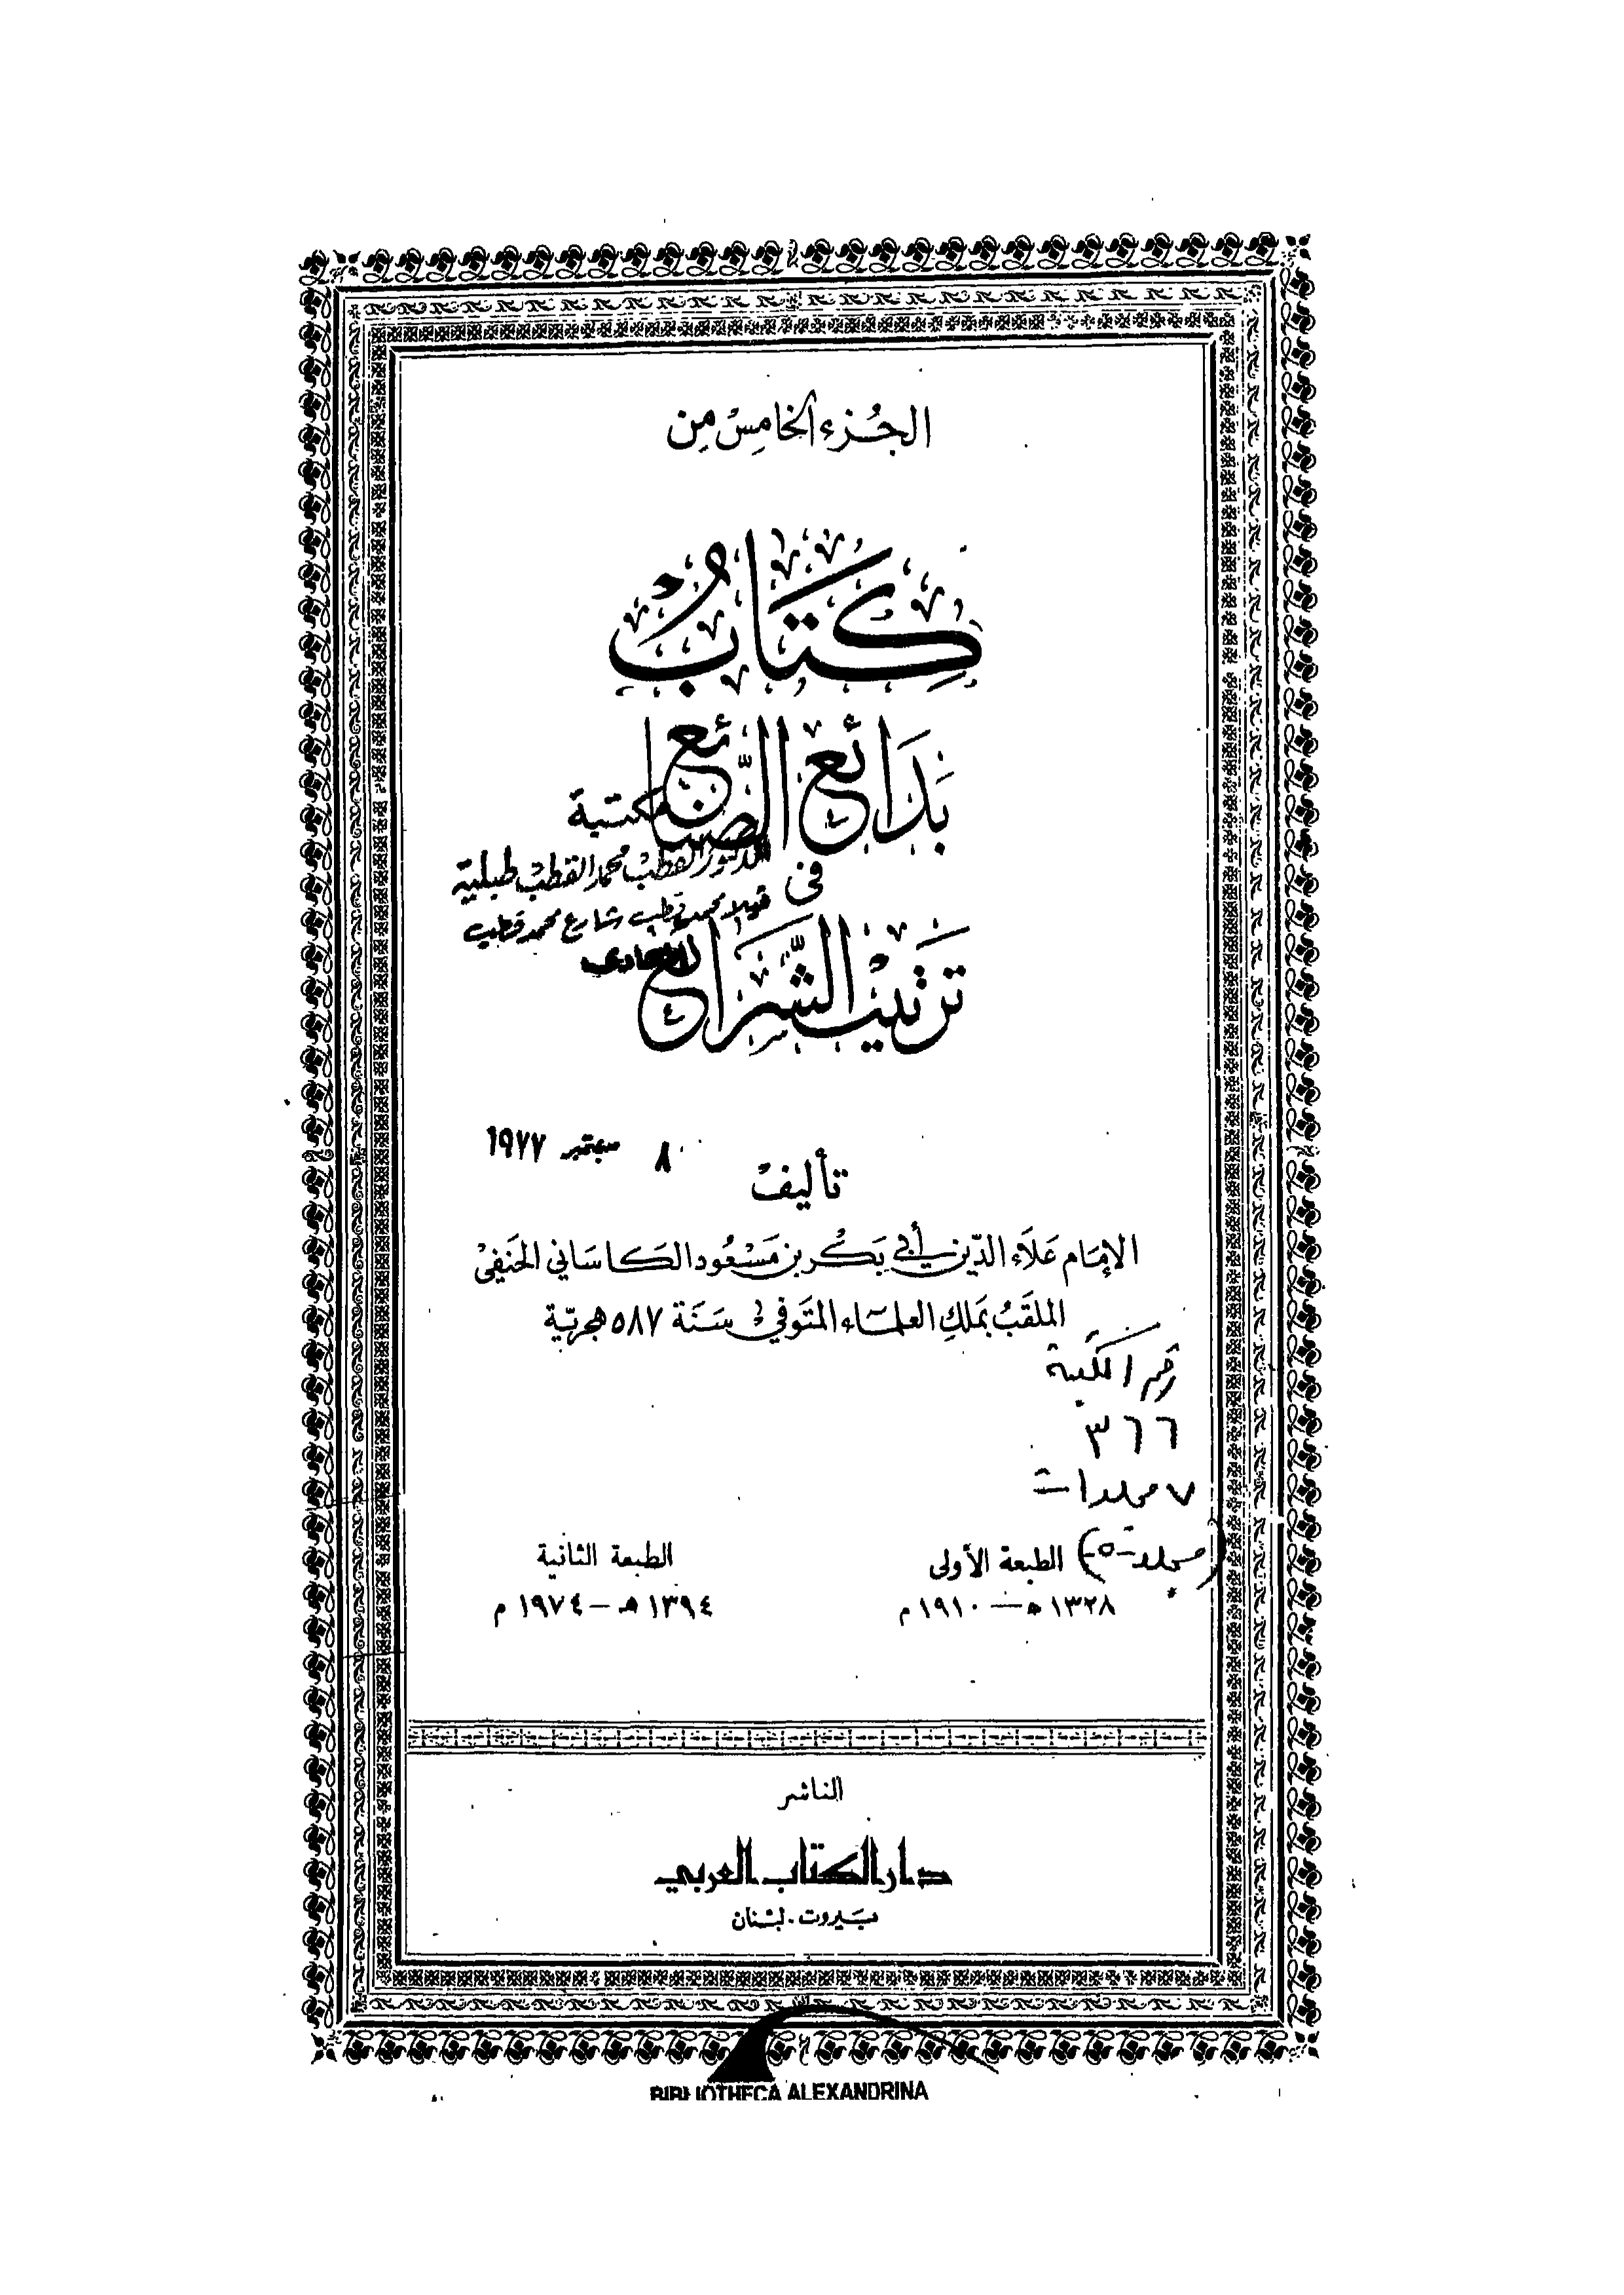 الجُزء الخامِسْ مِن
كِتَابُ
بَدَائع الصَّنائع
مكتبة
الدكتور القطب محمد القطب طبلية
في
فيلا محمد قطب شارع محمد قطب
المعادى
تَرتيبِ الشَّرائع
٨ سبتمبر ١٩٧٧
تأليف
الإمَام عَلاَء الدّين أبي بَكْر بن مَسْعُود الكاسَاني الحَنَفي
الملقبُ بمَلكِ العلمَاء المتَوفى سَنَة ٥٨٧ هجريّة
رقم المكتبة
٣٦٦
٧ مجلدات
(مجلد -٥-)
الطبعة الأولى
١٣٢٨ ه — ١٩١٠ م
الطبعة الثانية
١٣٩٤ هـ — ١٩٧٤ م
الناشر
دار الكتاب العربي
بَيروت - لبْنان
BIBLIOTHECA ALEXANDRINA